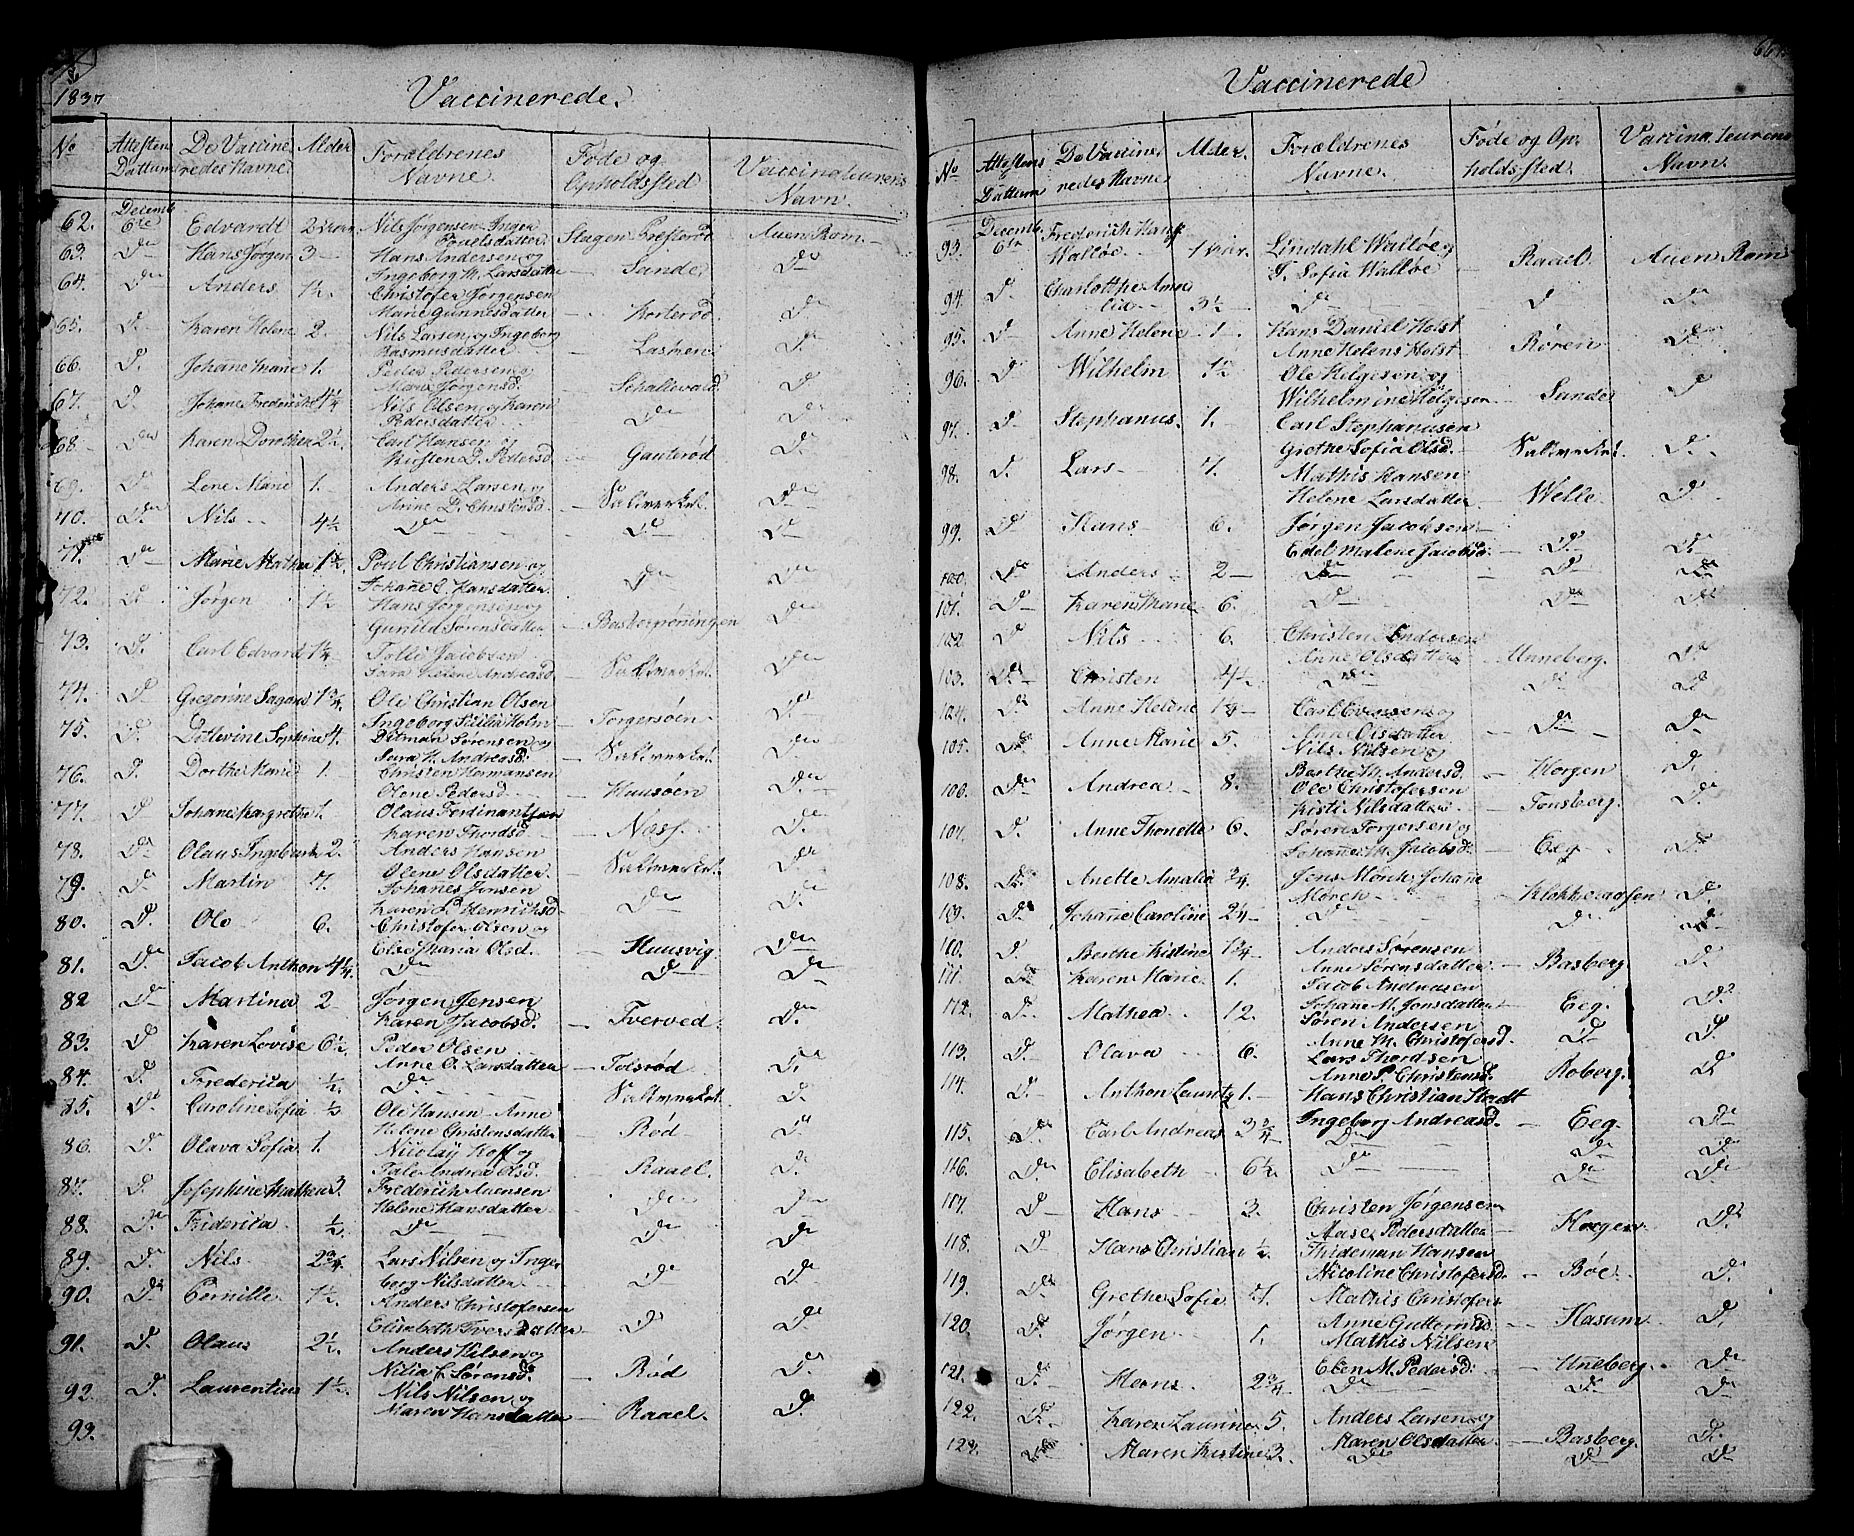 1837
Vaccinerede.
No Attesten Dattum De Vaccineredes Navne Alder Forældrenes Navne Føde og Opholdssted Vaccinateurens Navn
62. Decemb 6te Edvardt Nils Jørgensen Inger Povelsdatter Auen Ram
63. Do Hans Jørgen 3 Hans Andersen og Ingeborg M. Larsdatter Sande Do
64. Do Anders 1½. Christofer Jørgensen Marie Gunnesdatter Korterød Do
65. Do Karen Helene 2. Nils Larsen og Ingeborg Rasmusdatter Lasken Do
66. Do Johanne Marie 1. Peder Pedersen og Maria Jørgensd. Schallevald Do
67. Do Johane Fredericke 1¼ Nils Olsen og Karen Pedersdatter Do Do
68. Do Karen Dorthea 2½. Carl Hansen og Kirsten D. Pedersd. Gauterød Do
69. Do Lene Marie 1. Anders Larsen og Anne D. Christensd. Saltverket Do
70. Do Nils 4½ Do Do Do
71. Do Marie Mathea 1½. Poul Christiansen og Johane C. Hansdatter Do Do
72. Do Jørgen 1½ Hans Jørgensen og Gunild Sørensdatter Do
73. Do Carl Edvard 1¼ Tolle Jacobsen Sara Helene Andreasd Saltverket Do
74. Do Gregorine 1¾. Ole Christian Olsen Ingeborg Sicilia Holm Torgersøen Do
75. Do Detlevine Sophine 4. Ditman Sørensen og Sara H. Andreasd. Saltverket Do
76. Do Dorthe Marie 1. Christen Hermansen Olene Pedersd Huusøen Do
77. Do Johane Margrethe 1. Olaus Ferdinantsen Karen Thordsd. Næss. Do
78. Do Olaus Ingebret 2. Anders Hansen Olene Olsdatter Saltverket. Do
79. Do Martin 7. Johannes Jensen Karen P. Henrichsd. Do Do
80. Do Ole 6. Christofer Olsen og Else Maria Olsd. Huusvig Do
81. Do Jacob Anthon 4¼. Do Do Do
82 Do Martina 2 Jørgen Jensen Karen Jacobsd. Tverved. Do
83. Do Karen Lovise 6½. Peder Olsen Anne O. Larsdatter Tolsrød Do
84. Do Frederica ½. Do Saltverket Do
85. Do Caroline Sofia ½ Ole Hansen Anne Helene Christensdatter Rød Do
86. Do Olava Sofia 1. Nicolay Hoff og Tale Andrea Olsd. Raael. Do
87. Do Josephine Mathea 3. Frederich Auensen Helene Hansdatter Do Do
88. Do Friderica ½. Do Do Do
89. Do Nils 2¾. Lars Nilsen og Ingeborg Nilsdatter Do Do
90. Do Pernille 1½. Anders Christofersen Elisabeth Iversdatter Do Do
91. Do Olaus 2½. Anders Nilsen og Sørensd. Rød Do
92. Do Laurentius 1½. Nils Nilsen og Maren Hansdatter Raael. Do
93.
Vaccinerede
No Attestens Dattum De Vaccineredes Navne Alder. Forældrenes Navne. Føde og Opholdssted. Vaccinateurens Navn.
93. Decemb. 6te Frederich Walløe 1 Lindahl Walløe og Sofia Walløe Raael Auen Ram
94. Do Charlotthe Amalia 3½ Do Do Do
95. Do Anne Helene 1. Hans Daniel Holst Anne Helens Holst Røren Do
96. Do Wilhelm 1½ Ole Helgesen og Wilhelmine Helgesen Sande Do
97. Do Stephanus. 1. Carl Stephanusen Grethe Sofia Olsd. Saltverket. Do
98. Do Lars 7. Mathis Hansen Helene Larsdatter Welle Do
99. Do Hans 6. Jørgen Jacobsen Edel Malene Jacobsd. Do Do
100. Do Anders 2 Do Do Do
101. Do Karen Marie 6. Do Do Do
102. Do Nils 6. Christen Andersen Anne Olsdatter Unneberg. Do
103. Do Christen 4½ Do Do Do
104. Do Anne Helene 1¼ Carl Evensen og Anne Olsdatter Do Do
105. Do Anne Marie 5. Nils Nilsen og Berthe M. Andersd. Horgen Do
106. Do Andrea 8. Ole Christofersen Kisti Nilsdatter Tonsberg. Do
107. Do Anne Thonette 6. Søren Torgersen og Johanne M. Jacobsd. Eeg Do
108. Do Anette Amalia ¾. Jens Mørch Johane Møreh Do
109. Do Johane Caroline 2¼ Do Do Do
110. Do Berthe Kistine 1¾. Anders Sørensen Anne Sørensdatter Basberg. Do
111. Do Karen Marie 1. Jacob Andreasen Johane M. Jonsdatter Eeg. Do
112. Do Mathea 12. Søren Andersen Anne M. Christofersd. Do Do
113. Do Olava 6. Lars Thordsen Anne P. Christensd. Roberg. Do
114. Do Anthon Lauritz 1. Hans Christian Stadt Ingeborg Andreasd. Eeg. Do
115. Do Carl Andreas 3¾ Do Do Do
116. Do Elisabeth 6½ Do Do Do
117. Do Hans 3. Christen Jørgensen Aase Pedersdatter Horgen Do
118. Do Hans Christian ½. Thideman Hansen Nicoline Christofersd. Bøe. Do
119. Do Grethe Sofia 7. Mathis Christofers Anne Guttormsd Hasum Do
120. Do Jørgen 1. Mathis Nilsen Elen M. Pedersd. Unneberg. Do
121. Do Hans. 2¾ Do Do Do
122. Do Karen Laurine 5. Anders Larsen og Maren Olsdatter Basberg. Do
Do Maren Kistine 3. Do Do Do